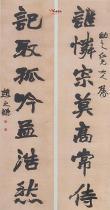 誰憐宗莫高常侍
記取孤吟孟浩然
趙之謙